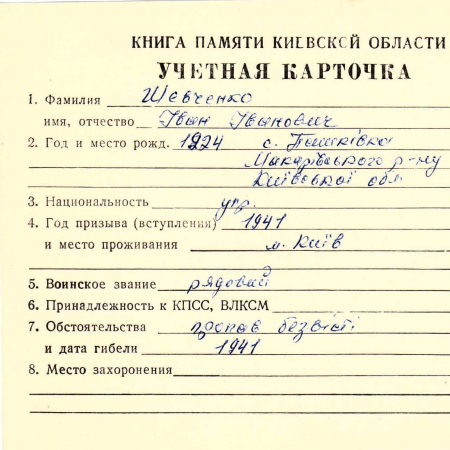 КНИГА ПАМЯТИ КИЕВСКОЙ ОБЛАСТИ
УЧЕТНАЯ КАРТОЧКА
1. Фамилия Шевченко
имя, отчество Іван Іванович
2. Год и место рожд. 1924 с. Пашківка
Макарівського р-ну
Київської обл
3. Национальность укр.
4. Год призыва (вступления) 1941
и место проживания м. Київ
5. Воинское звание рядовий
6. Принадлежность к КПСС, ВЛКСМ
7. Обстоятельства пропав безвісті
и дата гибели 1941
8. Место захоронения